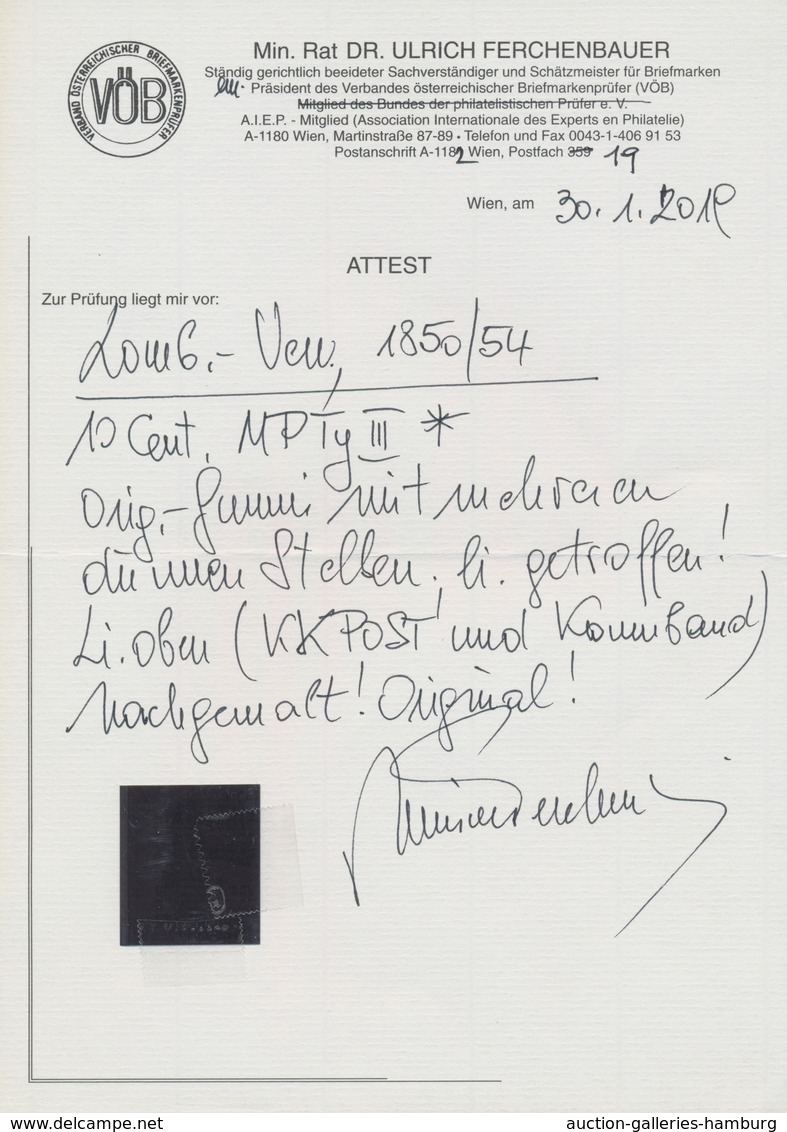 VERBAND ÖSTERREICHISCHER BRIEFMARKENPRÜFER
VÖB
Min. Rat DR. ULRICH FERCHENBAUER
Ständig gerichtlich beeideter Sachverständiger und Schätzmeister für Briefmarken
em. Präsident des Verbandes österreichischer Briefmarkenprüfer (VÖB)
Mitglied des Bundes der philatelistischen Prüfer e. V.
A.I.E.P. - Mitglied (Association Internationale des Experts en Philatelie)
A-1180 Wien, Martinstraße 87-89 • Telefon und Fax 0043-1-406 91 53
Postanschrift A-1182 Wien, Postfach 359 19
Wien, am 30. 1. 2019
ATTEST
Zur Prüfung liegt mir vor:
Lomb.- Ven, 1850/54
10 Cent, MP Ty III *
Orig.- Gummi mit mehreren
dünnen Stellen. li. getroffen!
Li. oben (KKPOST und Kornband)
Nachgemalt! Original!
www.delcampe.net
auction-galleries-hamburg